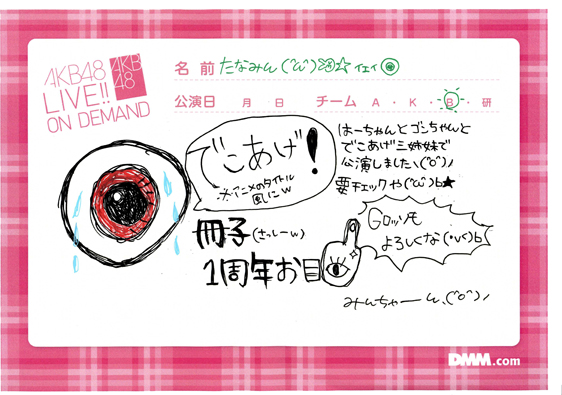 AKB48
LIVE!!
ON DEMAND
AKB
48
名前 たなみん(^ω^)☆イェイ
公演日 月 日 チーム A・K・B・研
でこあげ!
※アニメのタイトル
風にw
はーちゃんとゴンちゃんと
でこあげ三姉妹で
公演しました、(^o^)ノ
要チェックや(^ω^)b★
冊子(さっしーw)
1周年お目
Gロッソも
よろしくな(・v<)b
みんちゃーん、(^o^)ノ
DMM.com